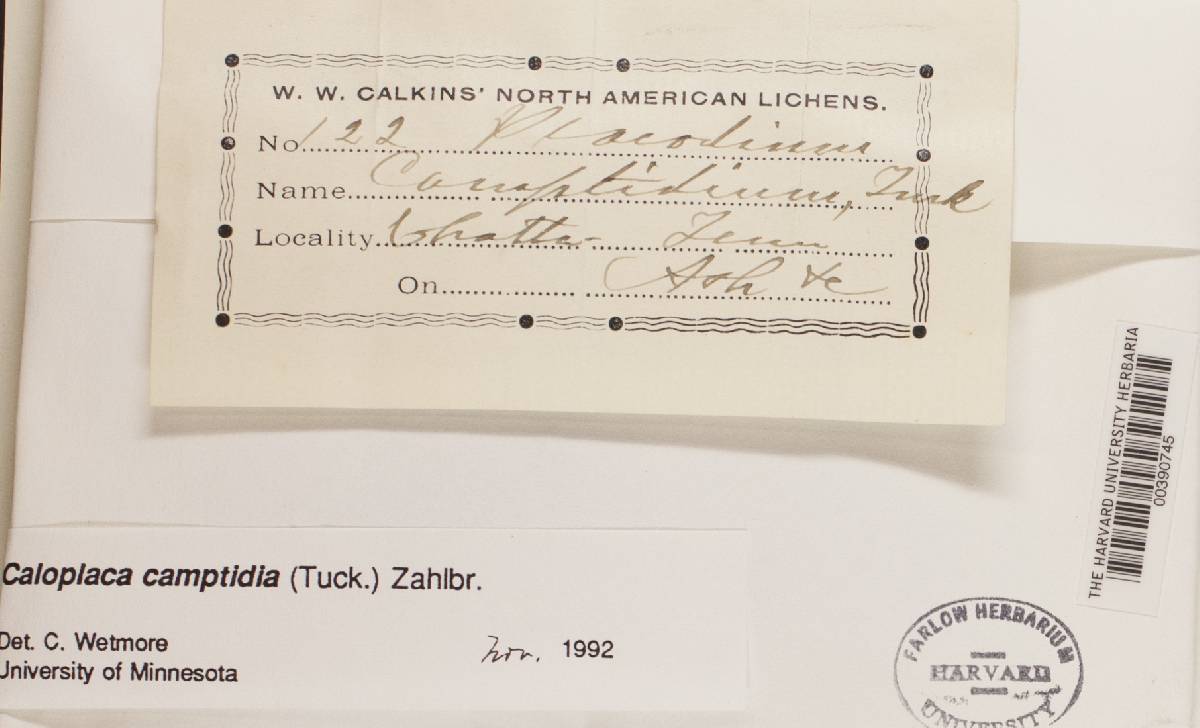 W. W. CALKINS' NORTH AMERICAN LICHENS.
No. 122 Placodium
Name Camptidium, Tuck
Locality Chatta- Tenn
On Ash &c
THE HARVARD UNIVERSITY HERBARIA
00390745
Caloplaca camptidia (Tuck.) Zahlbr.
Det. C. Wetmore Nov. 1992
University of Minnesota
FARLOW HERBARIUM
HARVARD
UNIVERSITY